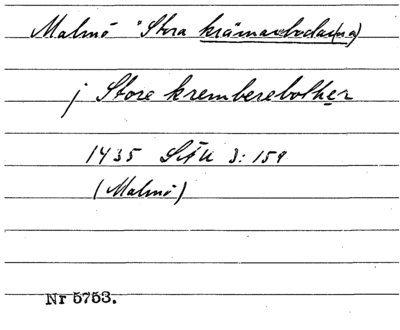 Malmö "Stora krämarebodar(na)
j Store kremberebother
1435 SFSU 3:159
(Malmö)
Nr 5753.